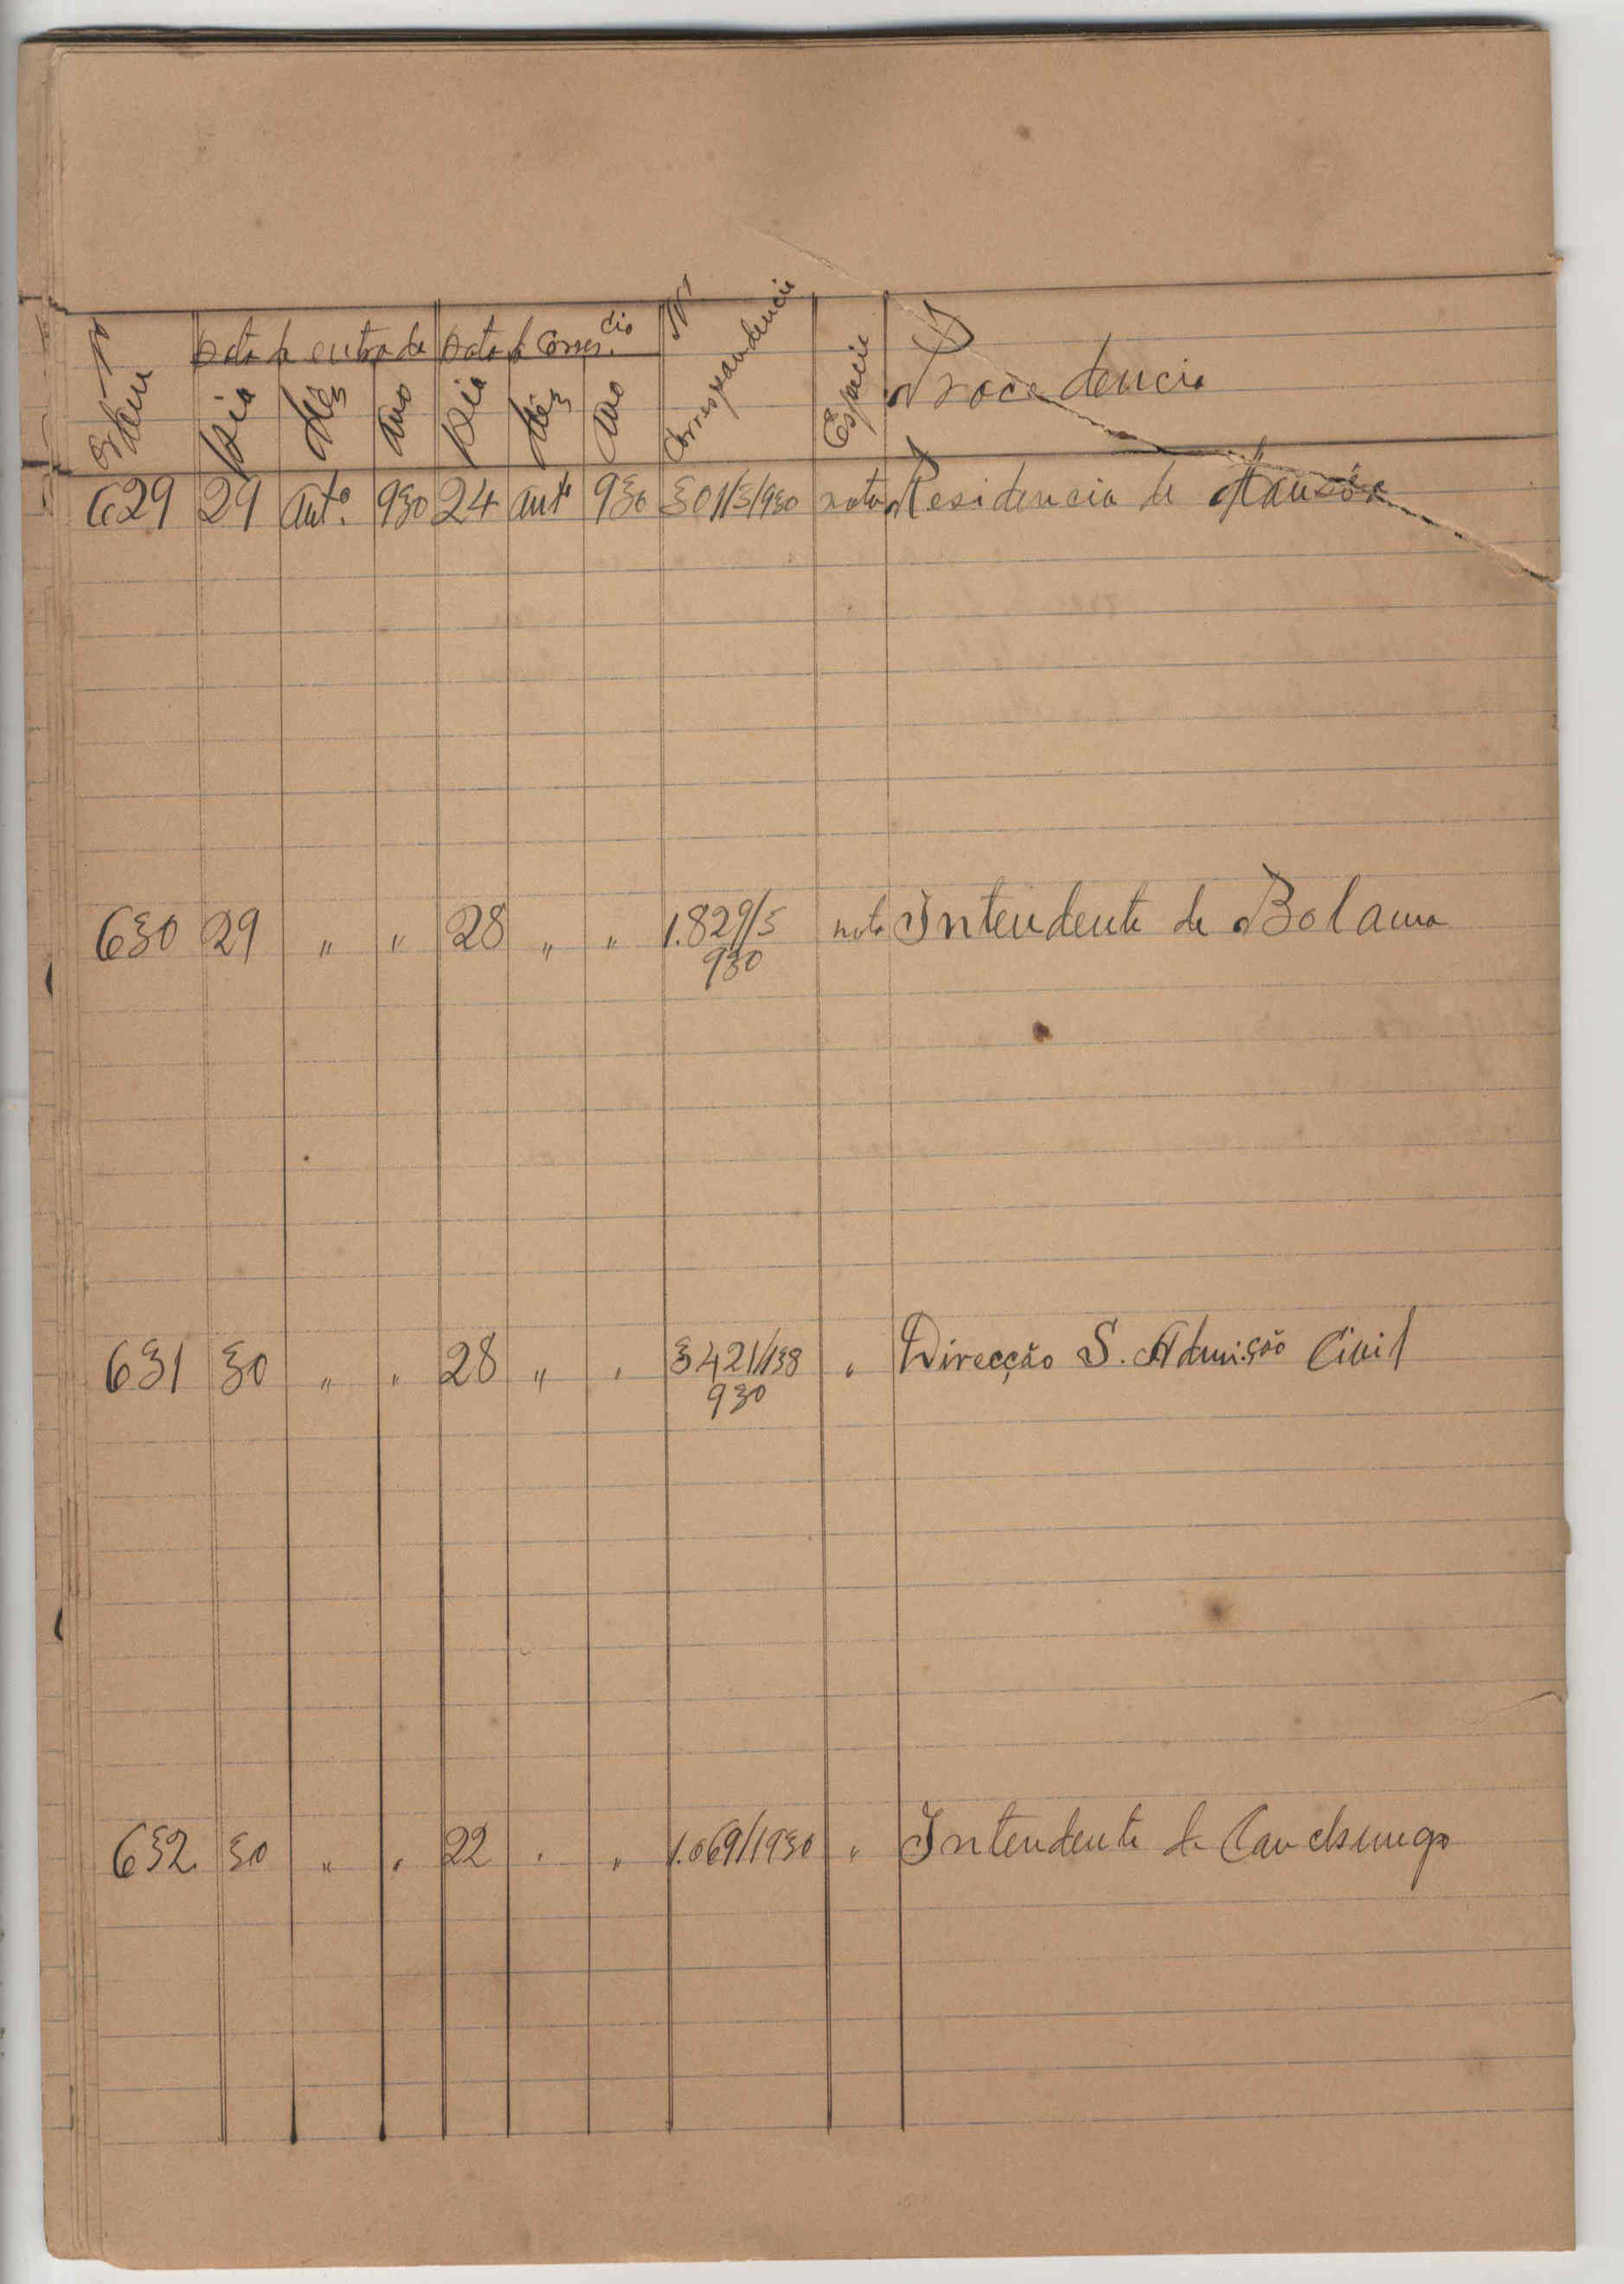 Nº Ordem Data de entrada Data de Corres.cia Nº Correspondencia Especie Procedencia
Dia Mês Ano Dia Mês Ano
629 29 Out.º 930 24 Outº 930 301/5/930 nota Residencia de Mansôa
630 29 " " 28 " " 1.829/5 nota Intendente de Bolama
930
631 30 " " 28 " " 3421/138 " Direcção S. Admi.ção Civil
930
632 30 " " 22 " " 1.069/1930 " Intendente de Canchungo